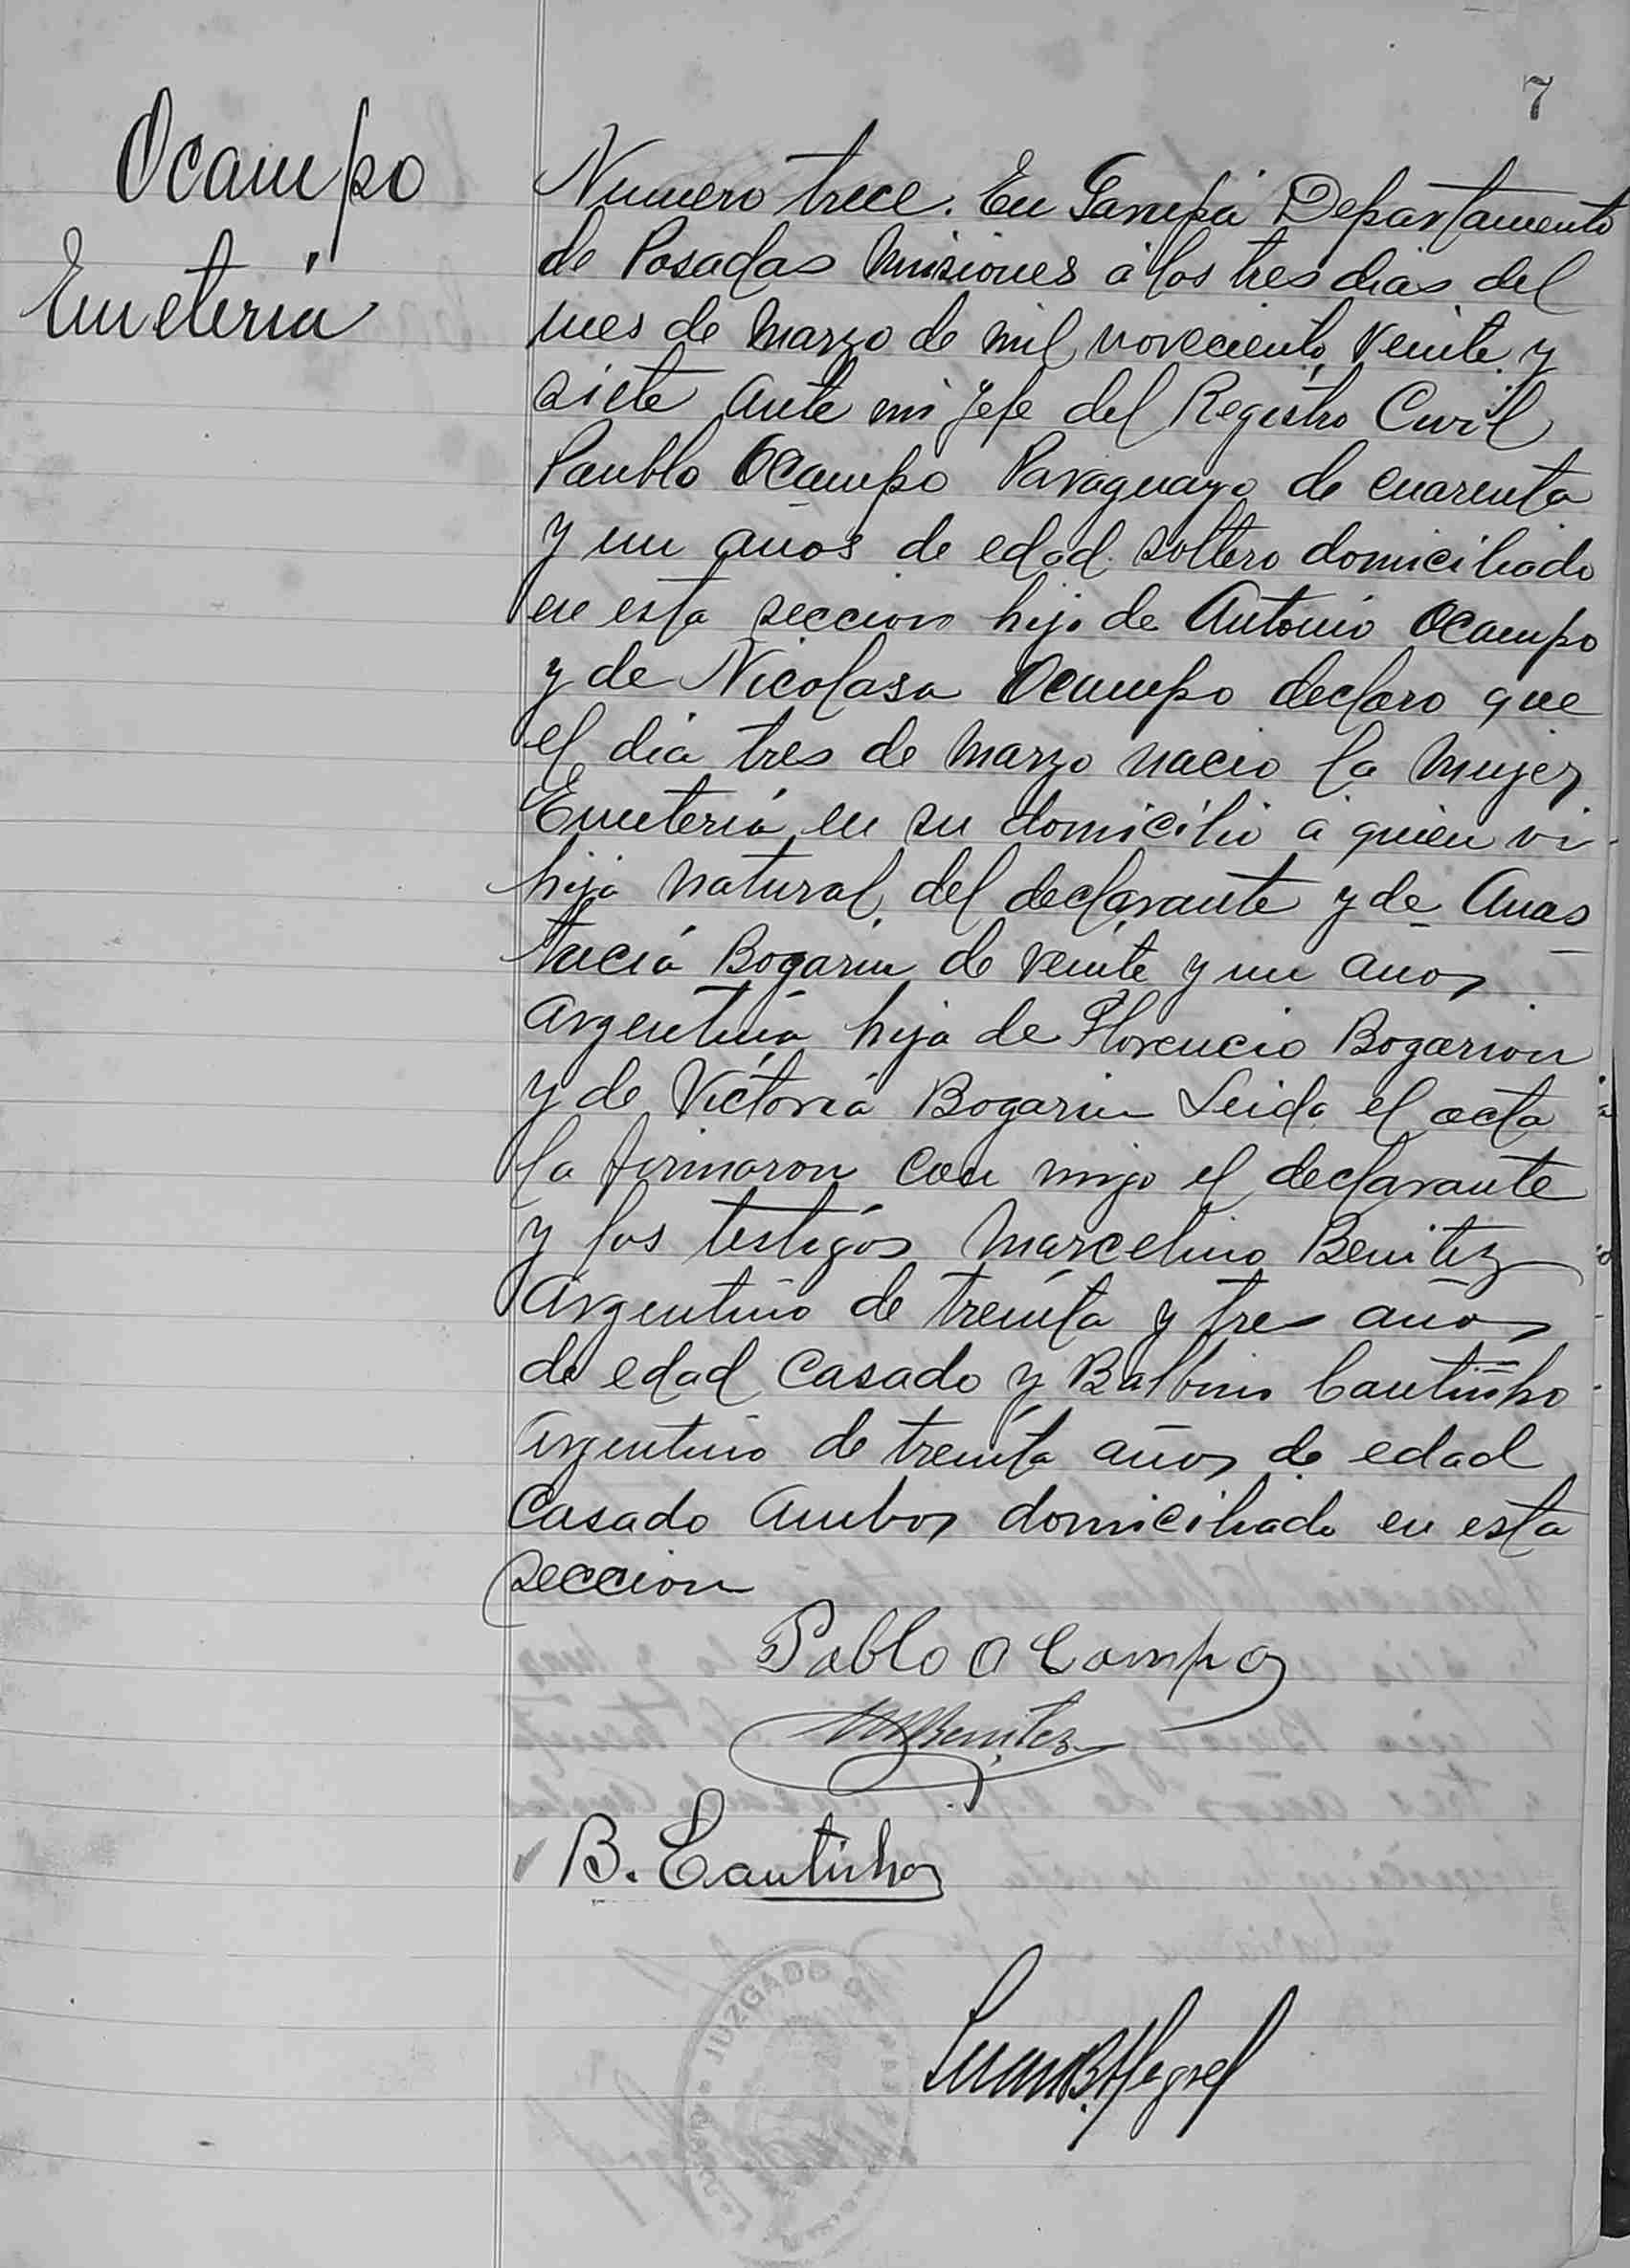 7
Ocampo
Emeteria
Numero trece. En Garupá Departamento
de Posadas Misiones á los tres dias del
mes de Marzo de mil noveciento veinte y
siete ante mi Jefe del Registro Civil
Paublo Ocampo Paraguayo de cuarenta
y un años de edad soltero domiciliado
en esta seccion hijo de Antonio Ocampo
y de Nicolasa Ocampo declaro que
el dia tres de Marzo nacio la mujer
Emeteria en su domicilio á quien vi
hija natural del declarante y de Anas
tacia Bogarin de veinte y un años
Argentina hija de Florencio Bogarion
y de Victoria Bogarin Leida el acta
la firmaron con migo el declarante
y los testigos Marcelino Benitez
Argentino de treinta y tres años
de edad Casado y Balbino Cautiñho
Argentino de treinta años de edad
Casado Ambos domiciliado en esta
seccion
Pablo OCampo
MBenitez
B. Cautinho
JUZGADO